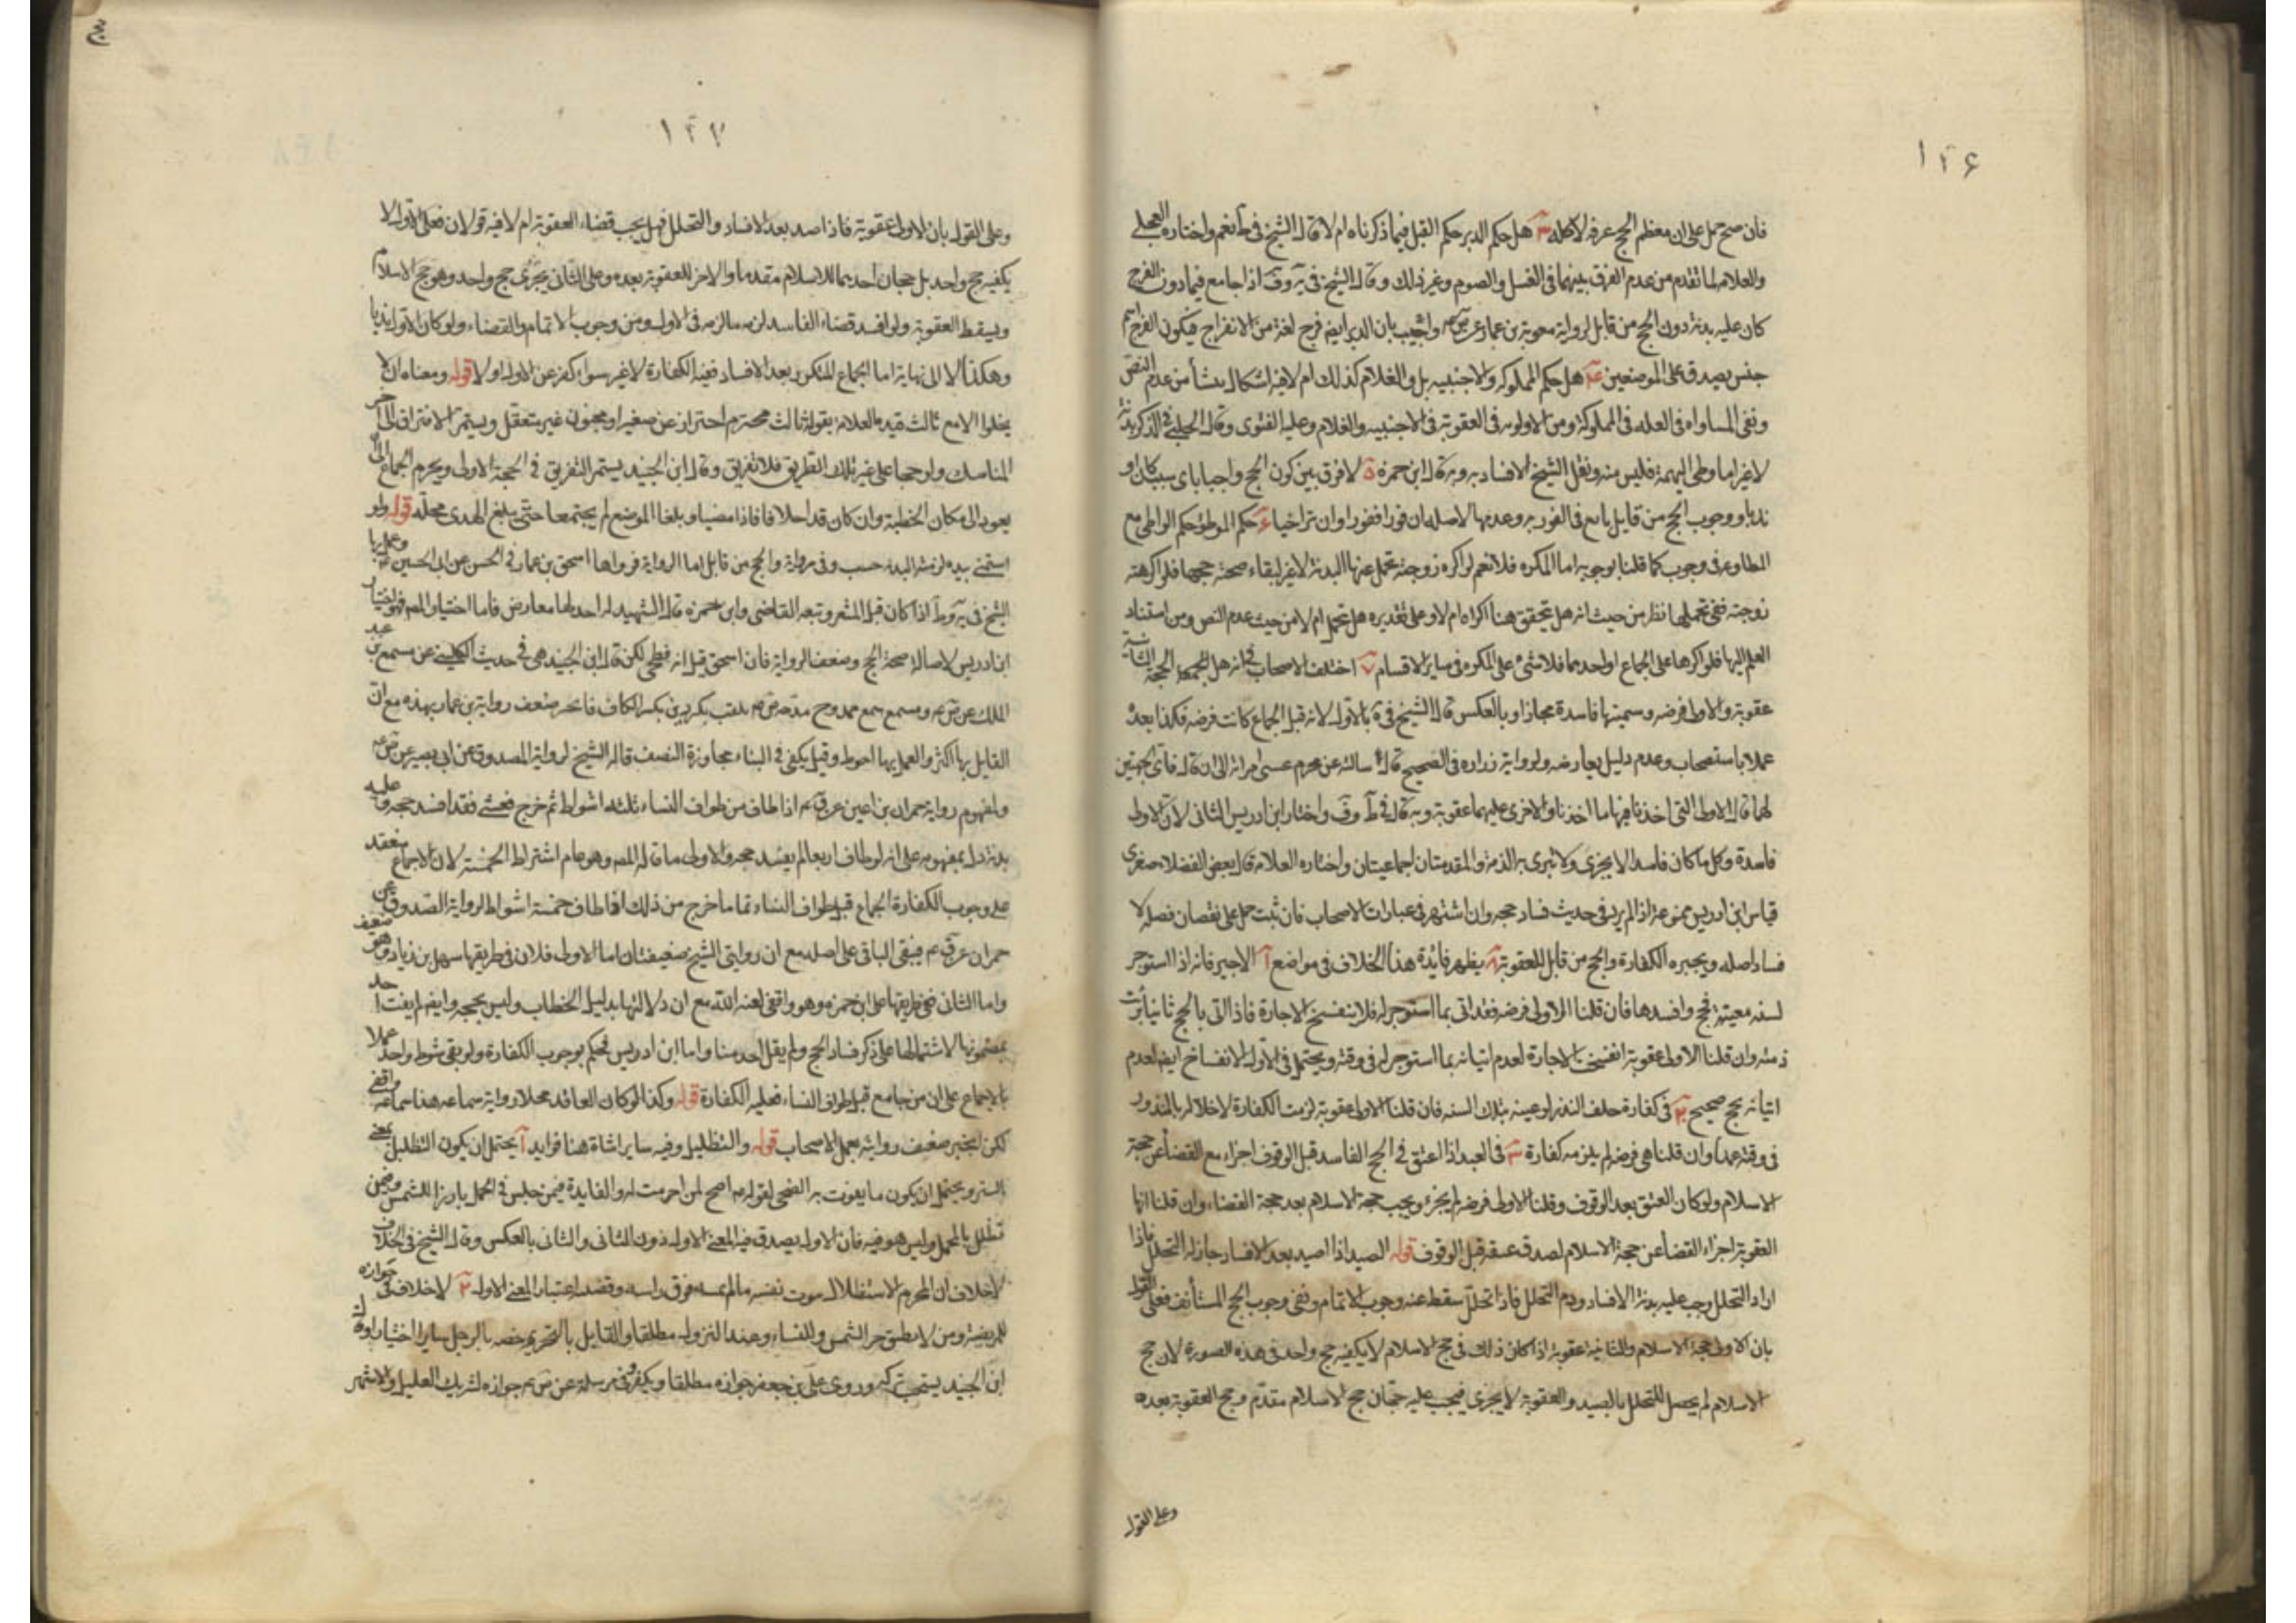 ١٢۶
فان صح حمل على ان معظم الحج عرفه لا كله ٣ هل حكم الدبر حكم القبل فيما ذكرناه ام لا قال الشيخ في ط نعم واختاره العجلى
والعلامه لما تقدم من عدم الفرق بينهما فى الغسل والصوم وغير ذلك وقال الشيخ فى يه وف اذا جامع فيما دون الفرج
كان عليه بدنة دون الحج من قابل لرواية معوية بن عمار عن ص ع واجيب بان الدبر ايضا فرج لغة من الانفراج فيكون الفرج اسم
جنس يصدق على الموضعين ٤ هل حكم المملوكه والاجنبيه بل والغلام كذلك ام لا فيه اشكال ينشأ من عدم النص
ونفى المساواه فى العله فى المملوكة ومن الاولويه فى العقوبة فى الاجنبيه والغلام وعليه الفتوى وقال الحلبى فى الذكر بدنة
لا غير اما وطى البهيمة فليس منه ونقل الشيخ الافساد به وبه قال ابن حمزه ٥ لا فرق بين كون الحج واجبا باى سبب كان او
ندبا ووجوب الحج من قابل تابع فى الفور به وعدمها لاصله ان فورا ففورا وان تراخيا حكم الموطؤ حكم الواطى مع
المطاوعه فى وجوب كما قلنا بوجوبه اما المكره فلا نعم لو اكره زوجته تحمل عنها البدنة لا غير لبقاء صحة حجها فلو اكرهته
زوجته ففى تحملها نظر من حيث انه هل يتحقق هنا اكراه ام لا وعلى تقديره هل تتحمل ام لا من حيث عدم النص ومن استناد
الفعل اليها فلو اكرها على الجماع او احدهما فلا شئ على المكره فى ساير الاقسام ٧ اختلف الاصحاب فى انه هل الحجة الثانية
عقوبة والاولى فرضه وسميتها فاسدة مجازا او بالعكس قال الشيخ فى يه بالاول لانه قبل الجماع كانت فرضه فكذا بعده
عملا باستصحاب وعدم دليل يعارضه ولرواية زراره فى الصحيح قال سالته عن محرم غشى امراته الى ان قال فاى الحجتين
لهما قال الاولى التى احدثا فيها ما احدثا والاخرى عليهما عقوبة وبه قال فى ط وف واختار ابن ادريس الثانى لان الاولى
فاسدة وكل ما كان فاسدا لا يجزى ولا تبرى به الذمة والمقدمتان اجماعيتان واختاره العلامه قال بعض الفضلاء صغرى
قياس ابن ادريس ممنوعة اذ لم يرد فى حديث فساد حجه وان اشتهر فى عبارات الاصحاب فان ثبت حمل على نقصان فضله لا
فساد اصله ويجبره الكفارة والحج من قابل للعقوبة ٨ يظهر فايدة هذا الخلاف فى مواضع آ الاجير فانه اذا استوجر
لسنه معينة فحج وافسدها فان قلنا الاولى فرضه فقد اتى بما استوجر له فلا ينفسخ الاجارة فاذا اتى بالحج ثانيا برئت
ذمته وان قلنا الاولى عقوبة انفسخت الاجارة لعدم اتيانه بما استوجر له فى وقته ويحتمل فى الاول الانفساخ ايضا لعدم
اتيانه بحج صحيح ٢ فى كفارة حلف النذر لو عينه بتلك السنه فان قلنا الاولى عقوبة لزمت الكفارة لاخلاله بالمنذور
فى وقته عمدا وان قلنا هى فرضه لم يلزمه كفارة ٣ فى العبد اذا اعتق فى الحج الفاسد قبل الوقوف اجزاه مع القضا عن حجة
الاسلام ولو كان العتق بعد الوقوف وقلنا الاولى فرضه لم يجزء ويجب حجة الاسلام بعد حجة القضاء وان قلنا انها
العقوبة اجزاء القضا عن حجة الاسلام لصدق عتقه قبل الوقوف قوله الصيد اذا اصيد بعد الافساد جاز له التحلل فاذا
اراد التحلل وجب عليه بدنة الافساد ودم التحلل فاذا تحلل سقط عنه وجوب الاتمام ونفى وجوب الحج المستأنف فعلى القول
بان الاولى حجة الاسلام والثانية عقوبة اذا كان ذلك فى حج الاسلام لا يكفيه حج واحد فى هذه الصورة لان حج
الاسلام لم يحصل للتحلل بالصيد والعقوبة لا يجزى فيجب عليه حجّان حج الاسلام مقدّم وحج العقوبة بعده
وعلى القول
١٢٧
وعلى القول بان الاولى عقوبة فاذا صد بعد الافساد والتحلل فهل يجب قضاء العقوبة ام لا فيه قولان فعلى الاول لا
يكفيه حج واحد بل حجان احدهما للاسلام مقدما والاخر للعقوبة بعده وعلى الثانى يجزى حج واحد وهو حج الاسلام
ويسقط العقوبة ولو افسد قضاء الفاسد لزمه ما لزمه فى الاول ومن وجوب الاتمام والقضاء ولو كان الاول ندبا
وهكذا لا الى نهاية اما الجماع المتكرر بعد الافساد ففيه الكفارة لا غير سواء كفر عن الاول او لا قوله ومعناه ان لا
يخلوا الا مع ثالث قيده العلامة بقوله ثالث محترم احتراز عن صغير او مجنون غير متعقل ويستمر الافتراق الى آخر
المناسك ولو حجا على غير تلك الطريق فلا تفريق وقال ابن الجنيد يستمر التفريق فى الحجة الاولى ويحرم الجماع الى ان
يعود الى مكان الخطيئة وان كان قد احلا فاذا مضيا وبلغا الموضع لم يجتمعا حتى يبلغ الهدى محلّه قوله ولو
استمنى بيده لزمته البدنه حسب وفى رواية والحج من قابل اما الرواية فرواها اسحق بن عمار فى الحسن عن ابى الحسين ع وعمل بها
الشيخ فى يه وط اذا كان قبل المشعر وتبعه القاضى وابن حمزه قال الشهيد لم اجد لها معارض فاما اختيار المص فهو اختيار
ابن ادريس لاصالة صحة الحج وضعف الرواية فان اسحق قيل انه فطحى لكن قال ابن الجنيد هى فى حديث الكلينى عن مسمع بن عبد
الملك عن ص ع ومسمع سمع ممدوح مدحه ص ع بلقب بكردين بكسر الكاف فانجبر ضعف رواية بن عمار بهذه مع ان
القايل بها اكثر والعمل بها احوط وقيل يكفى فى البناء مجاوزة النصف قاله الشيخ لرواية الصدوق عن ابى بصير عن ص ع
ولمفهوم رواية حمران بن اعين عن ق ع اذا طاف من طواف النساء ثلثه اشواط ثم خرج فغشى فقد افسد حجه وعليه
بدنة دل بمفهومه على انه لو طاف اربعا لم يفسد حجه والاولى ما قاله المص وهو عام اشتراط الخمسة لان الاجماع منعقد
على وجوب الكفارة الجماع قبل طواف النساء تماما خرج من ذلك اذا طاف خمسة اشواط لرواية الصدوق عن
حمران عن ق ع فيبقى الباقى على اصله مع ان روايتى الشيخ ضعيفتان اما الاولى فلان فى طريقها سهل بن زياد وهو ضعيف
واما الثانى ففى طريقها على ابن حمزه وهو واقفى لعنه الله مع ان دلالتها بدليل الخطاب وليس بحجه وايضا لم يفت احد
بمضمونها لاشتمالها على ذكر فساد الحج ولم يقل احد منا واما ابن ادريس فحكم بوجوب الكفارة ولو بقى شوط واحد عملا
بالاجماع على ان من جامع قبل طواف النساء فعليه الكفارة قوله وكذا لو كان العاقد محلا رواية سماعه هذا سماعه واقفى
لكن انجبر ضعيف روايته بعمل الاصحاب قوله والتظليل وفيه سايرا شاة هنا فوايد آ يحتمل ان يكون التظليل بمعنى
الستر ويحتمل ان يكون ما يفوت به الضحى لقوله ع اضح لمن احرمت له والفايدة فيمن جلس فى المحمل بارزا للشمس وفيمن
تظلل بالمحمل وليس هو فيه فان الاول يصدق فيه المعنى الاول دون الثانى والثانى بالعكس وقال الشيخ فى الخلاف
لا خلاف ان للمحرم الاستظلال بثوب نفسه ما لم يمسه فوق راسه وقضيه اعتبار المعنى الاول ٢ لا خلاف فى جوازه
للمريض ومن لا يطيق حر الشمس وللنساء وعند النزول مطلقا والقايل بالتحريم خصه بالرجل سايرا اختيارا وقال
ابن الجنيد يستحب تركه وروى على بن جعفر جوازه مطلقا ويكفر وفى مرسلة عن ص ع جوازه لشريك العليل والاشهر